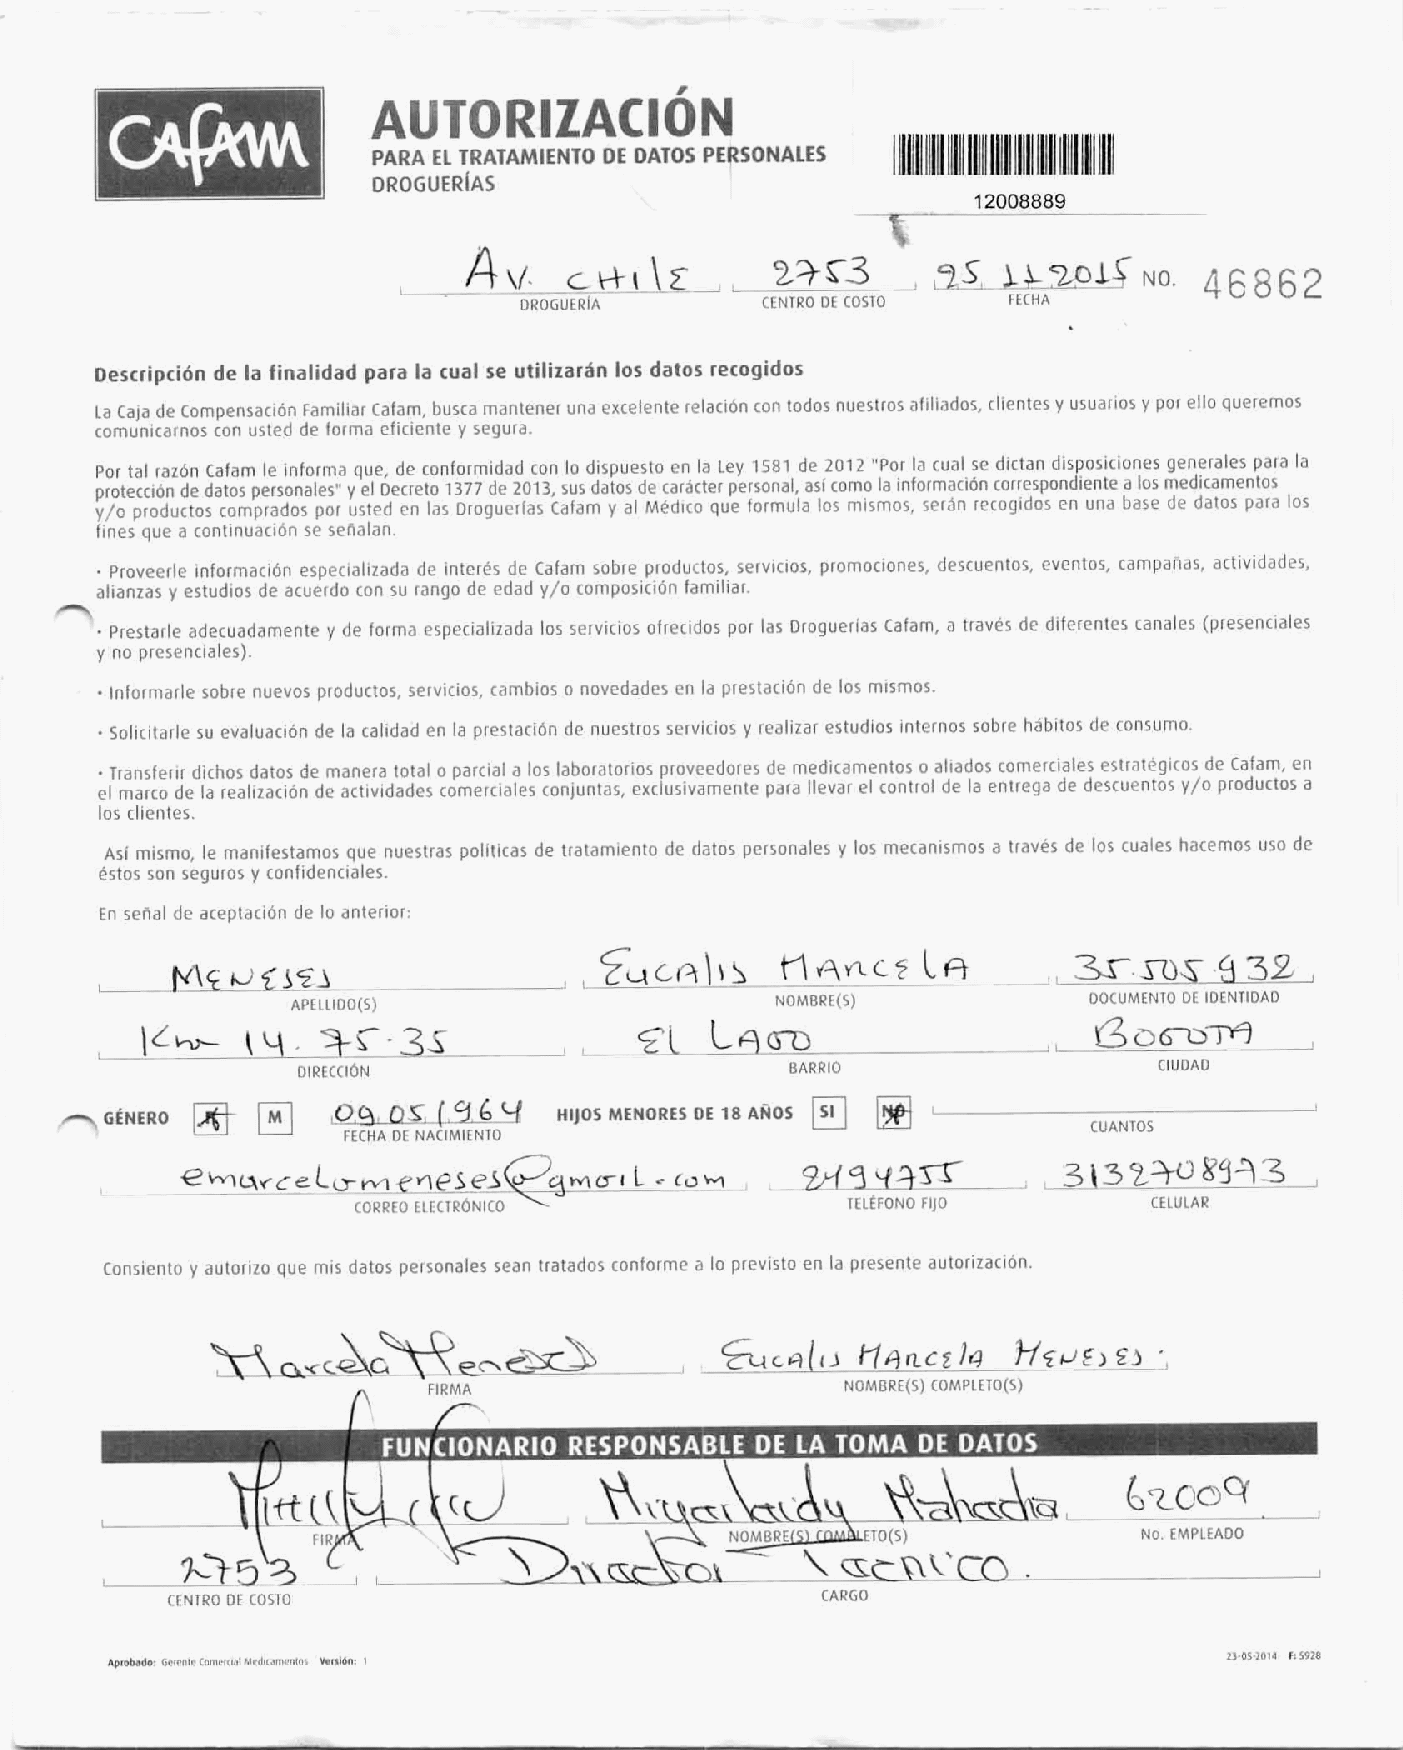 CAFAM
AUTORIZACIÓN
PARA EL TRATAMIENTO DE DATOS PERSONALES
DROGUERÍAS
12008889
Av. CHILE 2753 25 11 2015 NO. 46862
DROGUERÍA CENTRO DE COSTO FECHA
Descripción de la finalidad para la cual se utilizarán los datos recogidos
La Caja de Compensación Familiar Cafam, busca mantener una excelente relación con todos nuestros afiliados, clientes y usuarios y por ello queremos
comunicarnos con usted de forma eficiente y segura.
Por tal razón Cafam le informa que, de conformidad con lo dispuesto en la Ley 1581 de 2012 "Por la cual se dictan disposiciones generales para la
protección de datos personales" y el Decreto 1377 de 2013, sus datos de carácter personal, así como la información correspondiente a los medicamentos
y/o productos comprados por usted en las Droguerías Cafam y al Médico que formula los mismos, serán recogidos en una base de datos para los
fines que a continuación se señalan.
· Proveerle información especializada de interés de Cafam sobre productos, servicios, promociones, descuentos, eventos, campañas, actividades,
alianzas y estudios de acuerdo con su rango de edad y/o composición familiar.
· Prestarle adecuadamente y de forma especializada los servicios ofrecidos por las Droguerías Cafam, a través de diferentes canales (presenciales
y no presenciales).
· Informarle sobre nuevos productos, servicios, cambios o novedades en la prestación de los mismos.
· Solicitarle su evaluación de la calidad en la prestación de nuestros servicios y realizar estudios internos sobre hábitos de consumo.
· Transferir dichos datos de manera total o parcial a los laboratorios proveedores de medicamentos o aliados comerciales estratégicos de Cafam, en
el marco de la realización de actividades comerciales conjuntas, exclusivamente para llevar el control de la entrega de descuentos y/o productos a
los clientes.
Así mismo, le manifestamos que nuestras políticas de tratamiento de datos personales y los mecanismos a través de los cuales hacemos uso de
éstos son seguros y confidenciales.
En señal de aceptación de lo anterior:
MENESES EUCALIS MARCELA 35.505.932
APELLIDO(S) NOMBRE(S) DOCUMENTO DE IDENTIDAD
14. 75-35 El LAGO BOGOTA
DIRECCIÓN BARRIO CIUDAD
GÉNERO M 09 05 1964 HIJOS MENORES DE 18 AÑOS SI NO
FECHA DE NACIMIENTO CUANTOS
emarcelameneses@gmail.com 2494755 3132708973
CORREO ELECTRÓNICO TELÉFONO FIJO CELULAR
Consiento y autorizo que mis datos personales sean tratados conforme a lo previsto en la presente autorización.
Marcela Meneses EUCALIS MARCELA MENESES.
FIRMA NOMBRE(S) COMPLETO(S)
FUNCIONARIO RESPONSABLE DE LA TOMA DE DATOS
Mahecha 62009
FIRMA NOMBRE(S) COMPLETO(S) No. EMPLEADO
2753 Director Tecnico.
CENTRO DE COSTO CARGO
Aprobado: Gerente Comercial Medicamentos Versión: 1 23-05-2014 F: 5928